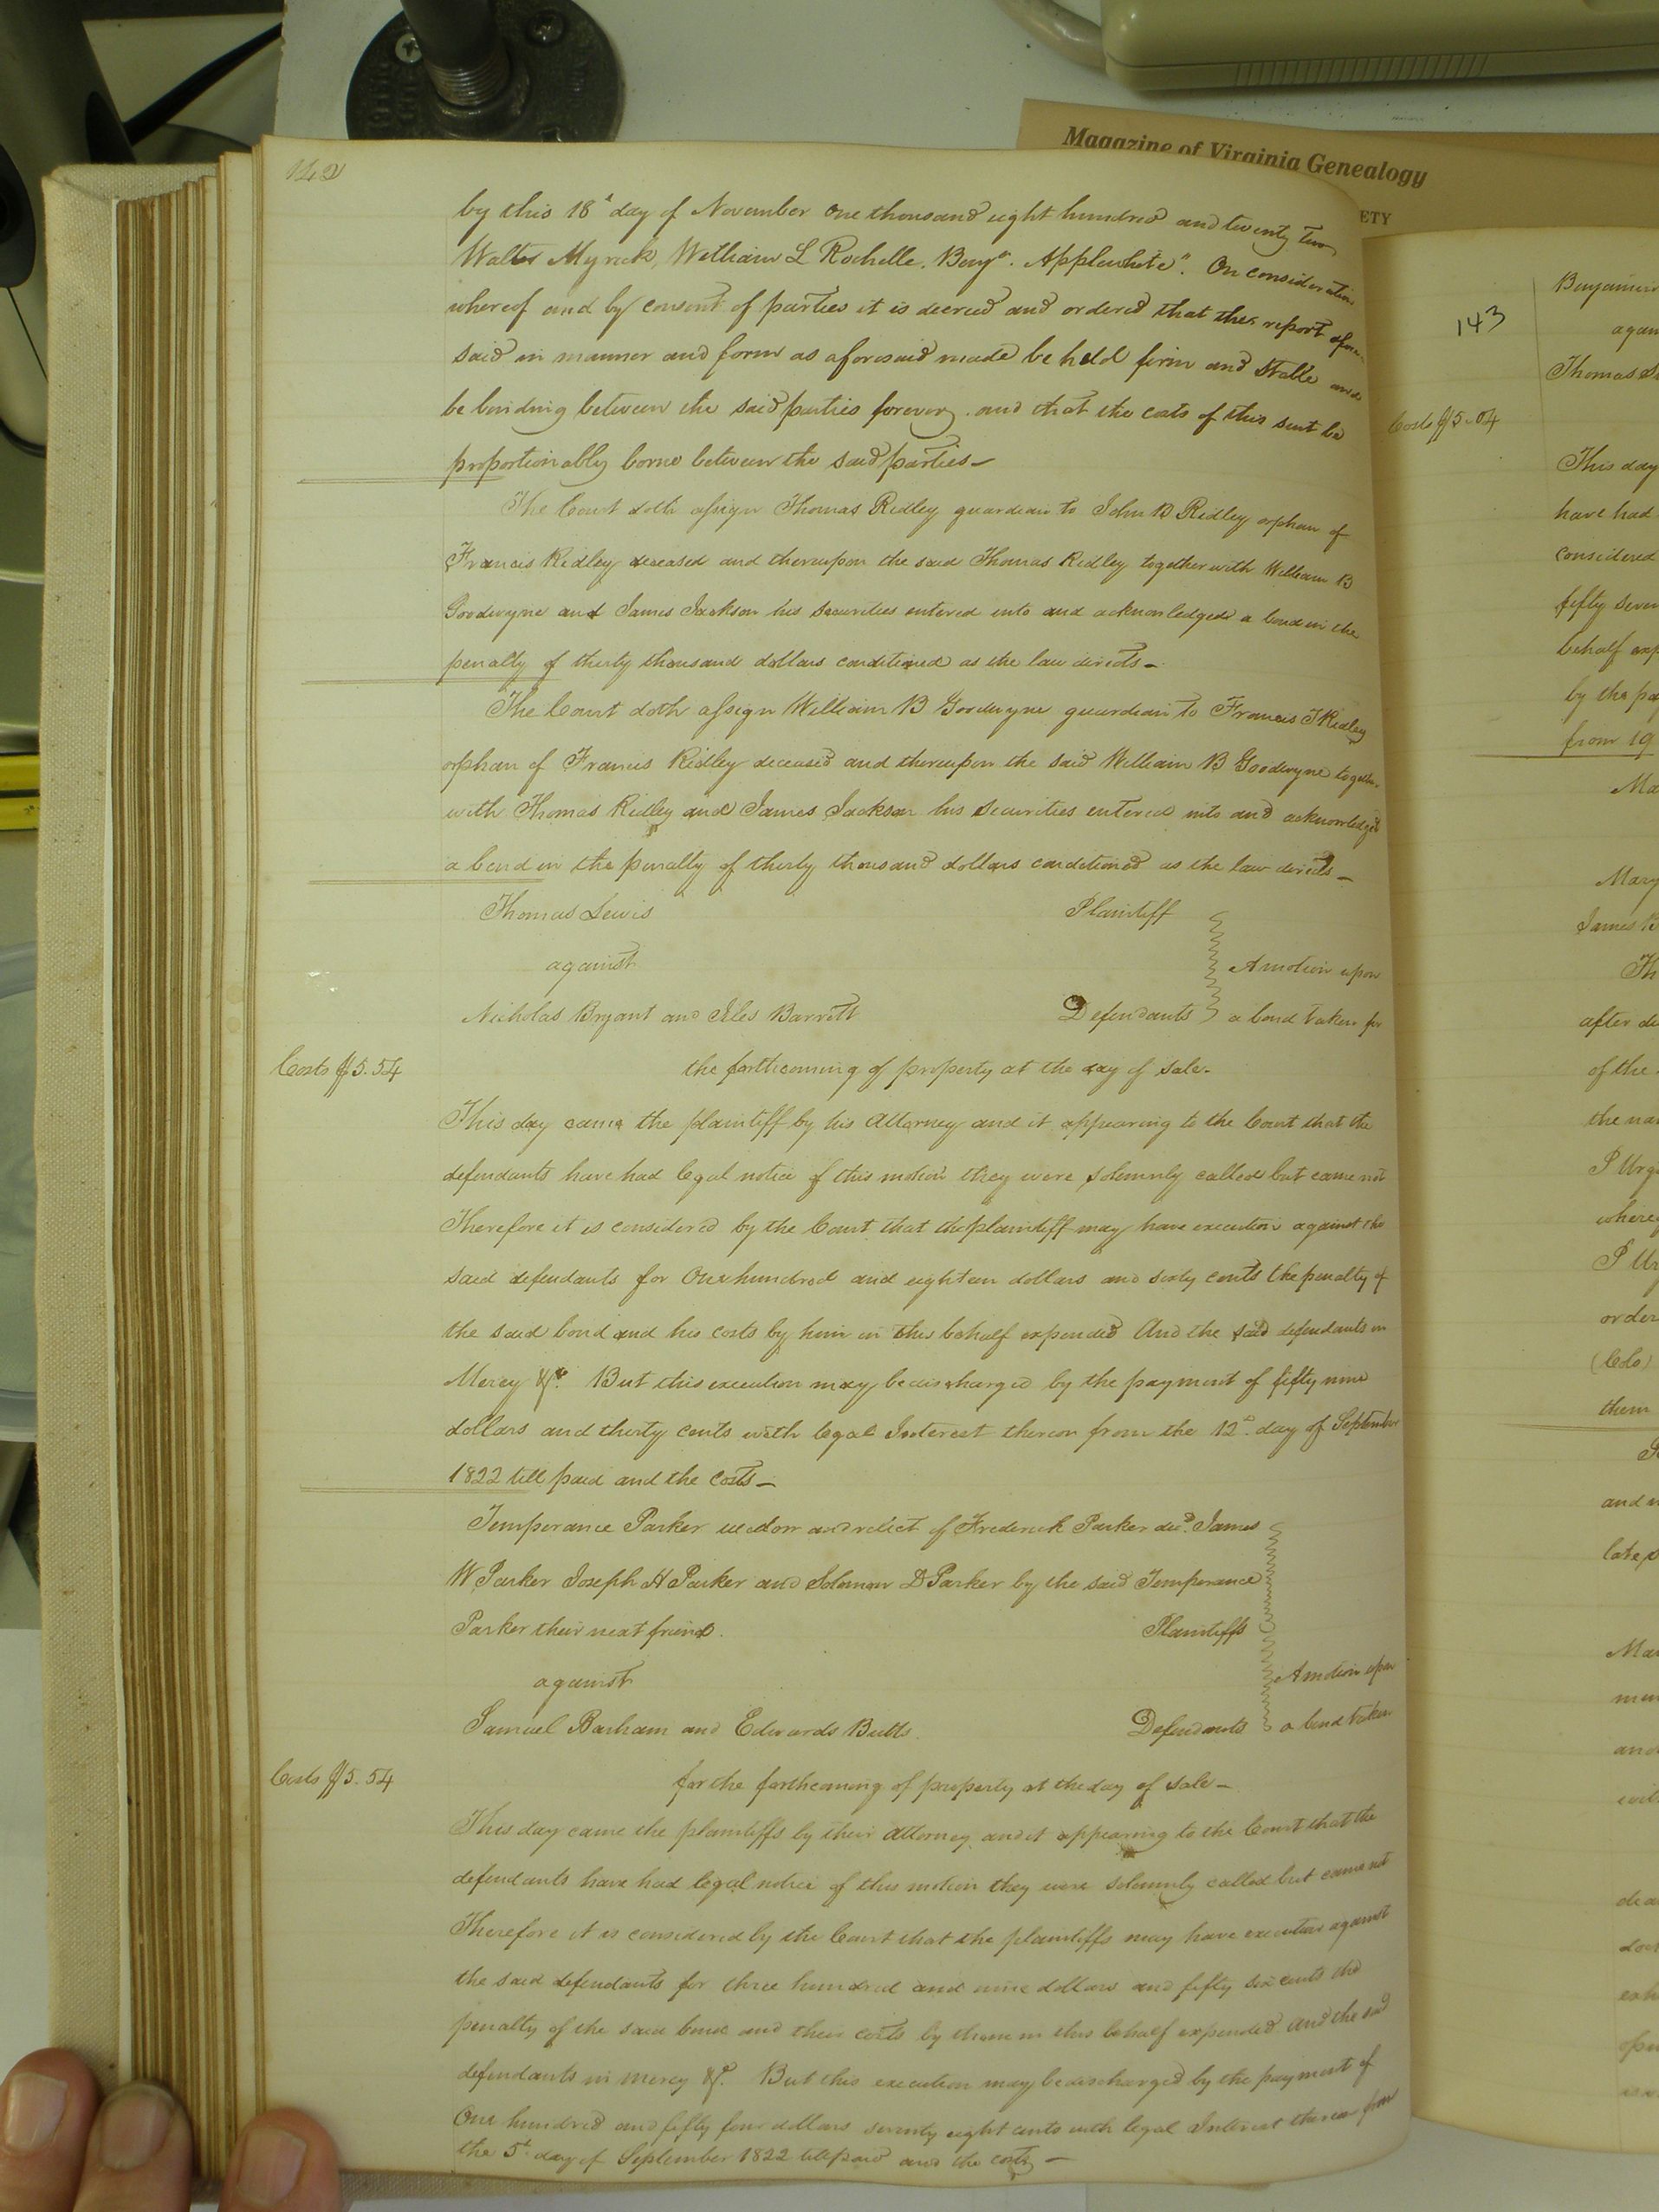 Magazine of Virginia Genealogy
ETY
142
by this 18th day of November one thousand eight hundred and twenty two
Walter Myrick, William L Rochelle. Benjn. Applewhite". On consideration
whereof and by consent of parties it is decreed and ordered that the report afore
said in manner and form as aforesaid made be held firm and stable and
be binding between the said parties forever, and that the costs of this suit be
proportionably borne between the said parties—
The Court doth assign Thomas Ridley guardian to John B Ridley orphan of
Francis Ridley deceased and thereupon the said Thomas Ridley together with William B
Goodwyne and James Jackson his securities entered into and acknowledged a bond in the
penalty of thirty thousand dollars conditioned as the law directs—
The Court doth assign William B Goodwyne guardian to Francis T Ridley
orphan of Francis Ridley deceased and thereupon the said William B Goodwyne together
with Thomas Ridley and James Jackson his securities entered into and acknowledged
a bond in the penalty of thirty thousand dollars conditioned as the law directs—
Thomas Lewis Plaintiff
against A motion upon
Nicholas Bryant and Iles Barrett Defendants a bond taken for
Costs $5.54 the forthcoming of property at the day of sale-
This day came the plaintiff by his Attorney and it appearing to the Court that the
defendants have had legal notice of this motion they were solemnly called but came not
Therefore it is considered by the Court that the plaintiff may have execution against the
said defendants for One hundred and eighteen dollars and sixty cents the penalty of
the said bond and his costs by him in this behalf expended And the said defendants in
Mercy &c. But this execution may be discharged by the payment of fifty nine
dollars and thirty cents with legal Interest thereon from the 12th day of September
1822 till paid and the costs—
Temperance Parker widow and relict of Frederick Parker decd. James
W Parker Joseph H Parker and Solomon D Parker by the said Temperance
Parker their next friend. Plaintiffs
against A motion upon
Samuel Barham and Edwards Butts. Defendants a bond taken
Costs $5.54 for the forthcoming of property at the day of sale—
This day came the plaintiffs by their Attorney and it appearing to the Court that the
defendants have had legal notice of this motion they were solemnly called but came not
Therefore it is considered by the Court that the plaintiffs may have execution against
the said defendants for three hundred and nine dollars and fifty six cents the
penalty of the said bond and their costs by them in this behalf expended And the said
defendants in mercy &c. But this execution may be discharged by the payment of
One hundred and fifty four dollars seventy eight cents with legal Interest thereon from
the 5th day of September 1822 till paid and the costs—
143
Costs $5.04
Benjamin
again
Thomas
This day
have had
considered
fifty seven
behalf exp
by the pa
from 19
Ma
Mary
James B
Th
after de
of the
the na
P Urq
where
P Ur
order
(Colo)
them
and
late